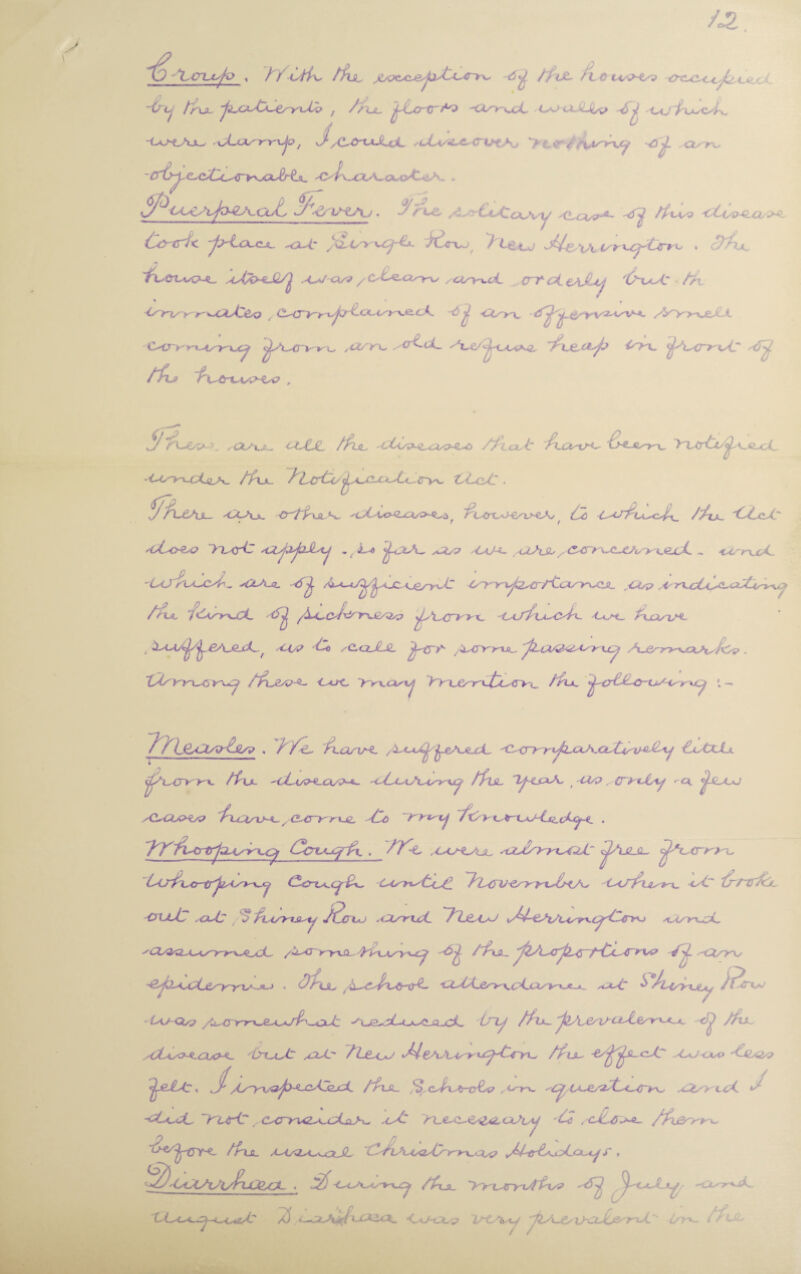 12.
Croup. With the exception of the houses occupied
by the patients, the floors and walls of which
were damp, I could discover nothing of an
objectionable character.
Puerperal Fever. The solitary case of this disease
took place at Single Row, New Herrington. The
house itself was clean and orderly but th
inmates complained of an offensive smell
coming from an old refuse heap in front of
the houses.
These are all the diseases that have been notified
under the Notification Act.
There are other diseases, however, to which the Act
does not apply - so far as we are concerned - and
which are of sufficient importance as indicating
the kind of sickness from which we have
suffered, as to call for some passing remarks.
Among these we may mention the following :-
Measles. We have suffered comparatively little
from the disease during the year, as only a few
cases have come to my knowledge.
Whooping Cough. We were almost free from
Whooping Cough until November when it broke
out at Shiney Row and New Herrington and
assumed something of the proportions of an
epidemic. The school attendance at Shiney Row
was somewhat reduced by the prevalence of the
disease but at New Herrington the effect was less
felt. I inspected the Schools in question and I
did not consider it necessary to close them
before the usual Christmas Holidays.
Diarrhœa. During the months of July and
August Diarrhœa was very prevalent in the